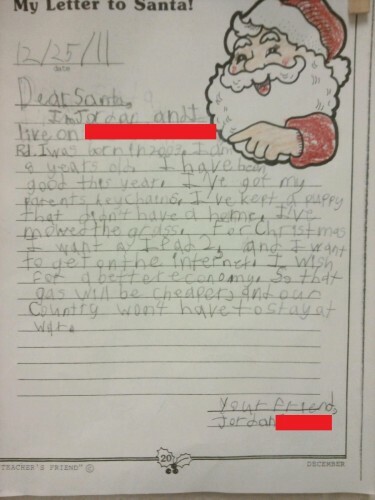 My Letter to Santa!
12/25/11
date
Dear Santa,
I'm Jordan and I
live on
Rd. I was born in 2003. I am
8 years old. I have been
good this year. I've got my
parents keychains, I've kept a puppy
that didn't have a home, I've
mowed the grass. For Christmas
I want a I Pad 2, and I want
to get on the internet. I wish
for a better economy. So that
gas will be cheaper, and our
Country wont have to stay at
war.
Your Friend,
Jordan
20
TEACHER'S FRIEND" ©
DECEMBER